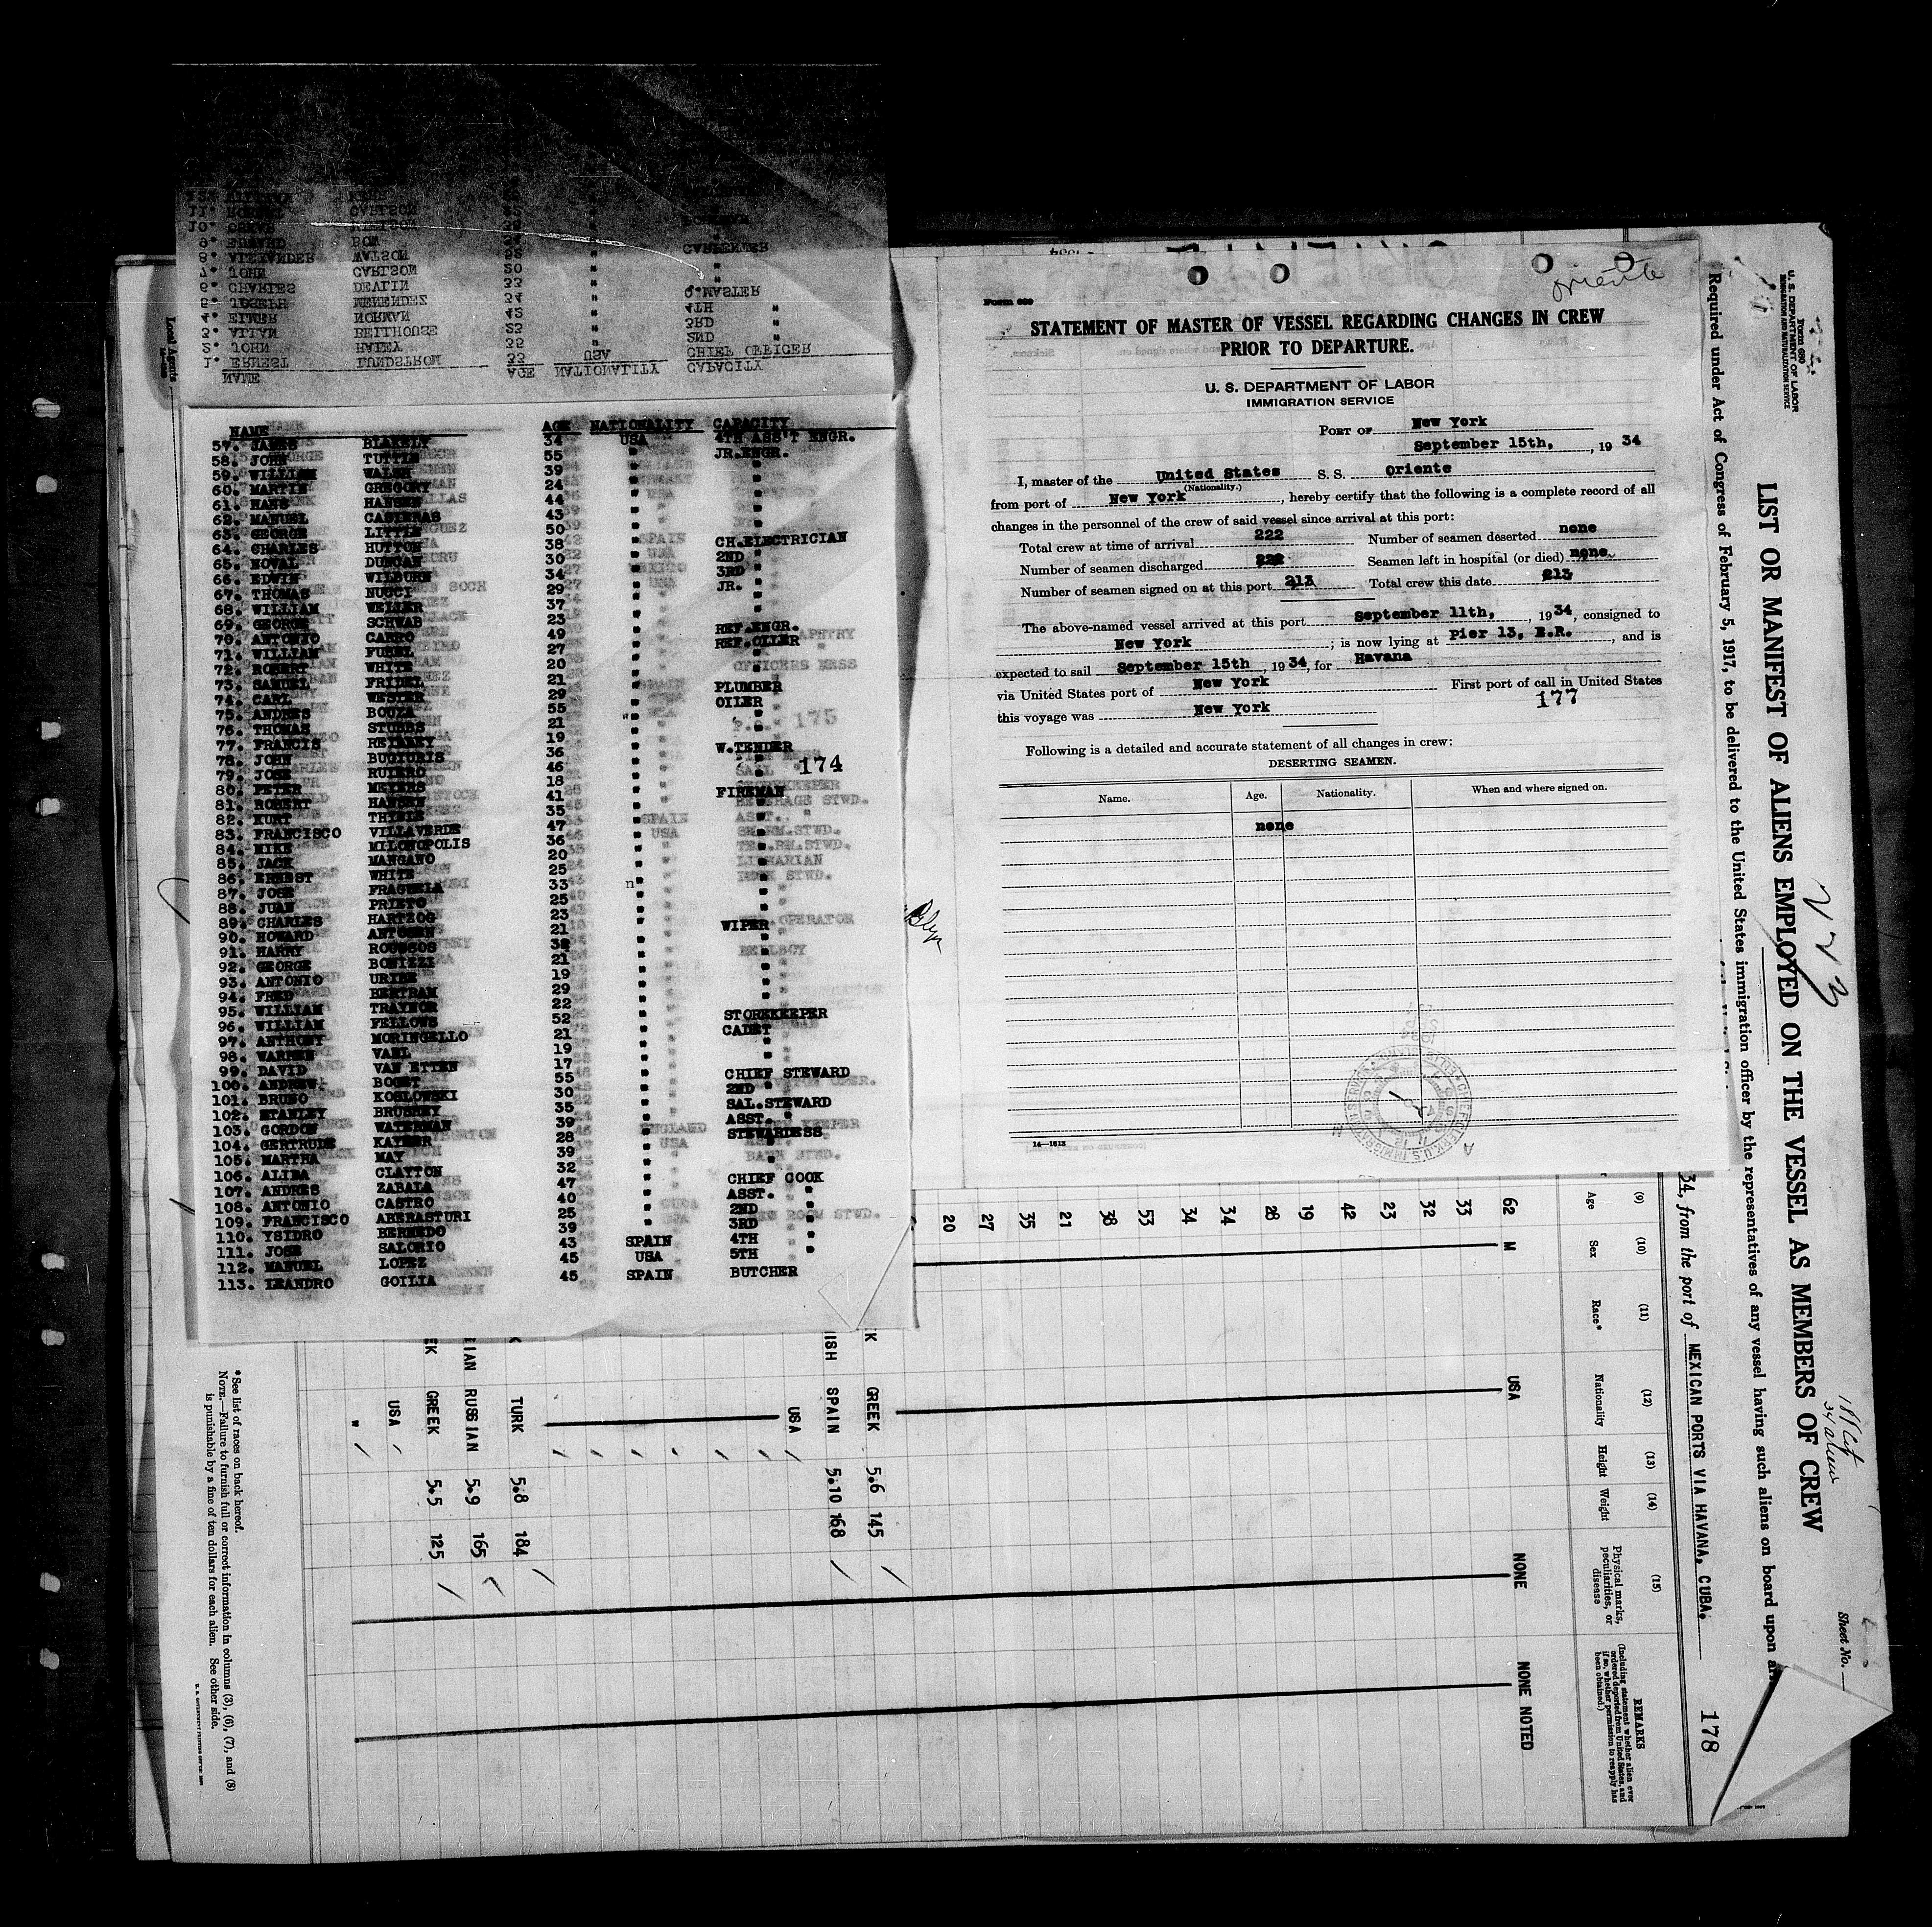 NAME AGE NATIONALITY CAPACITY
1. ERNEST LUNDSTROM 33 USA CHIEF OFFICER
2. JOHN HALEY 35 " 2ND "
3. ALLAN BELTHOUSE 23 " 3RD "
4. ELMER NORMAN 42 " 4TH "
5. JOSEPH MENENDEZ 34 " Q.MASTER
6. CHARLES DEALIN 33 " "
7. JOHN CARLSON 20 " "
8. ALEXANDER WATSON CARPENTER
9. EDWARD BOW
10.
11. CARLSON
NAME AGE NATIONALITY CAPACITY
57. JAMES BLAKELY 34 USA 4TH ASS'T ENGR.
58. JOHN TUTTLE 55 " JR.ENGR.
59. WILLIAM WALSH 39 " "
60. MARTIN GREGORY 24 " "
61. HANS HANSEN 44 " "
62. MANUEL CASTENAS 43 " "
63. GEORGE LITTLE 50 " "
64. CHARLES HUTTON 38 " CH.ELECTRICIAN
65. NOVAL DUNCAN 30 " 2ND "
66. EDWIN WILBURN 34 " 3RD "
67. THOMAS NUCCI 29 " JR. "
68. WILLIAM WELLER 37 " "
69. GEORGE SCHWAB 23 " "
70. ANTONIO CARRO 49 " REF.ENGR.
71. WILLIAM FUHEL 27 " REF.OILER
72. ROBERT WHITE 20 " "
73. SAMUEL FRIDEL 21 " "
74. CARL WESTER 29 " PLUMBER
75. ANDRES BOUZA 55 " OILER
76. THOMAS STUBBS 21 " "
77. FRANCIS REILLEY 19 " "
78. JOHN BUGIURIS 36 " W.TENDER
79. JOSE RUIERO 46 " "
80. PETER MEYERS 18 " "
81. ROBERT HANSEN 41 " FIREMAN
82. KURT THIELE 35 " "
83. FRANCISCO VILLAVERDE 47 " "
84. MIKE MILONOPOLIS 36 " "
85. JACK MANGANO 20 " "
86. ERNEST WHITE 25 " "
87. JOSE FRAGUELA 33 " "
88. JUAN PRIETO 25 " "
89. CHARLES HARTZOG 23 " "
90. HOWARD ANTOSEN 21 " WIPER
91. HARRY ROUSSOS 38 " "
92. GEORGE BONIZZI 21 " "
93. ANTONIO URIBE 19 " "
94. FRED BERTRAM 29 " "
95. WILLIAM TRAYNOR 22 " "
96. WILLIAM FELLOWS 52 " STOREKEEPER
97. ANTHONY MORINGELLO 21 " CADET
98. WARREN VAHL 19 " "
99. DAVID VAN ETTEN 17 " "
100. ANDREW BOGET 55 " CHIEF STEWARD
101. BRUNO KOSLOWSKI 30 " 2ND "
102. STANLEY BRUSHEY 35 " SAL.STEWARD
103. GORDON WATERMAN 39 " ASST. "
104. GERTRUDE KAYSER 28 " STEWARDESS
105. MARTHA MAY 39 " "
106. ALIDA CLAYTON 32 " "
107. ANDRES ZABALA 47 " CHIEF COOK
108. ANTONIO CASTRO 40 " ASST. "
109. FRANCISCO ABERASTURI 25 " 2ND "
110. YSIDRO BERMEDO 39 " 3RD "
111. JOSE SALORIO 43 SPAIN 4TH "
112. MANUEL LOPEZ 45 USA 5TH "
113. LEANDRO GOILIA 45 SPAIN BUTCHER
175
174
Oriente
Form 689
STATEMENT OF MASTER OF VESSEL REGARDING CHANGES IN CREW
PRIOR TO DEPARTURE.
U. S. DEPARTMENT OF LABOR
IMMIGRATION SERVICE
PORT OF New York
September 15th, , 19 34
I, master of the United States S. S. Oriente
(Nationality.)
from port of New York , hereby certify that the following is a complete record of all
changes in the personnel of the crew of said vessel since arrival at this port:
Total crew at time of arrival 222 Number of seamen deserted none
Number of seamen discharged 222 Seamen left in hospital (or died) none
Number of seamen signed on at this port 213 Total crew this date 213
The above-named vessel arrived at this port September 11th, , 19 34, consigned to
New York ; is now lying at Pier 13, E.R. , and is
expected to sail September 15th , 19 34, for Havana
via United States port of New York First port of call in United States
this voyage was New York
177
Following is a detailed and accurate statement of all changes in crew:
DESERTING SEAMEN.
Name. Age. Nationality. When and where signed on.
none
14—1813
Form 690
U. S. DEPARTMENT OF LABOR
IMMIGRATION AND NATURALIZATION SERVICE
Sheet No.
223
LIST OR MANIFEST OF ALIENS EMPLOYED ON THE VESSEL AS MEMBERS OF CREW
Required under Act of Congress of February 5, 1917, to be delivered to the United States immigration officer by the representatives of any vessel having such aliens on board upon
34, from the port of MEXICAN PORTS VIA HAVANA, CUBA.
178
(9) (10) (11) (12) (13) (14) (15)
Age Sex Race* Nationality Height Weight Physical marks, peculiarities, or disease
REMARKS
(Including statement whether alien ever ordered deported from United States, and if so, whether permission to reapply has been obtained.)
62 M USA NONE NONE NOTED
33
32
23
42
19
28
34
34
53
38
21
35
27
20
GREEK 5.6 145
SPAIN 5.10 168
USA
TURK 5.8 184
RUSSIAN 5.9 165
GREEK 5.5 125
USA
"
*See list of races on back hereof.
NOTE.—Failure to furnish full or correct information in columns (3), (6), (7), and (8)
is punishable by a fine of ten dollars for each alien. See other side.
Local Agents